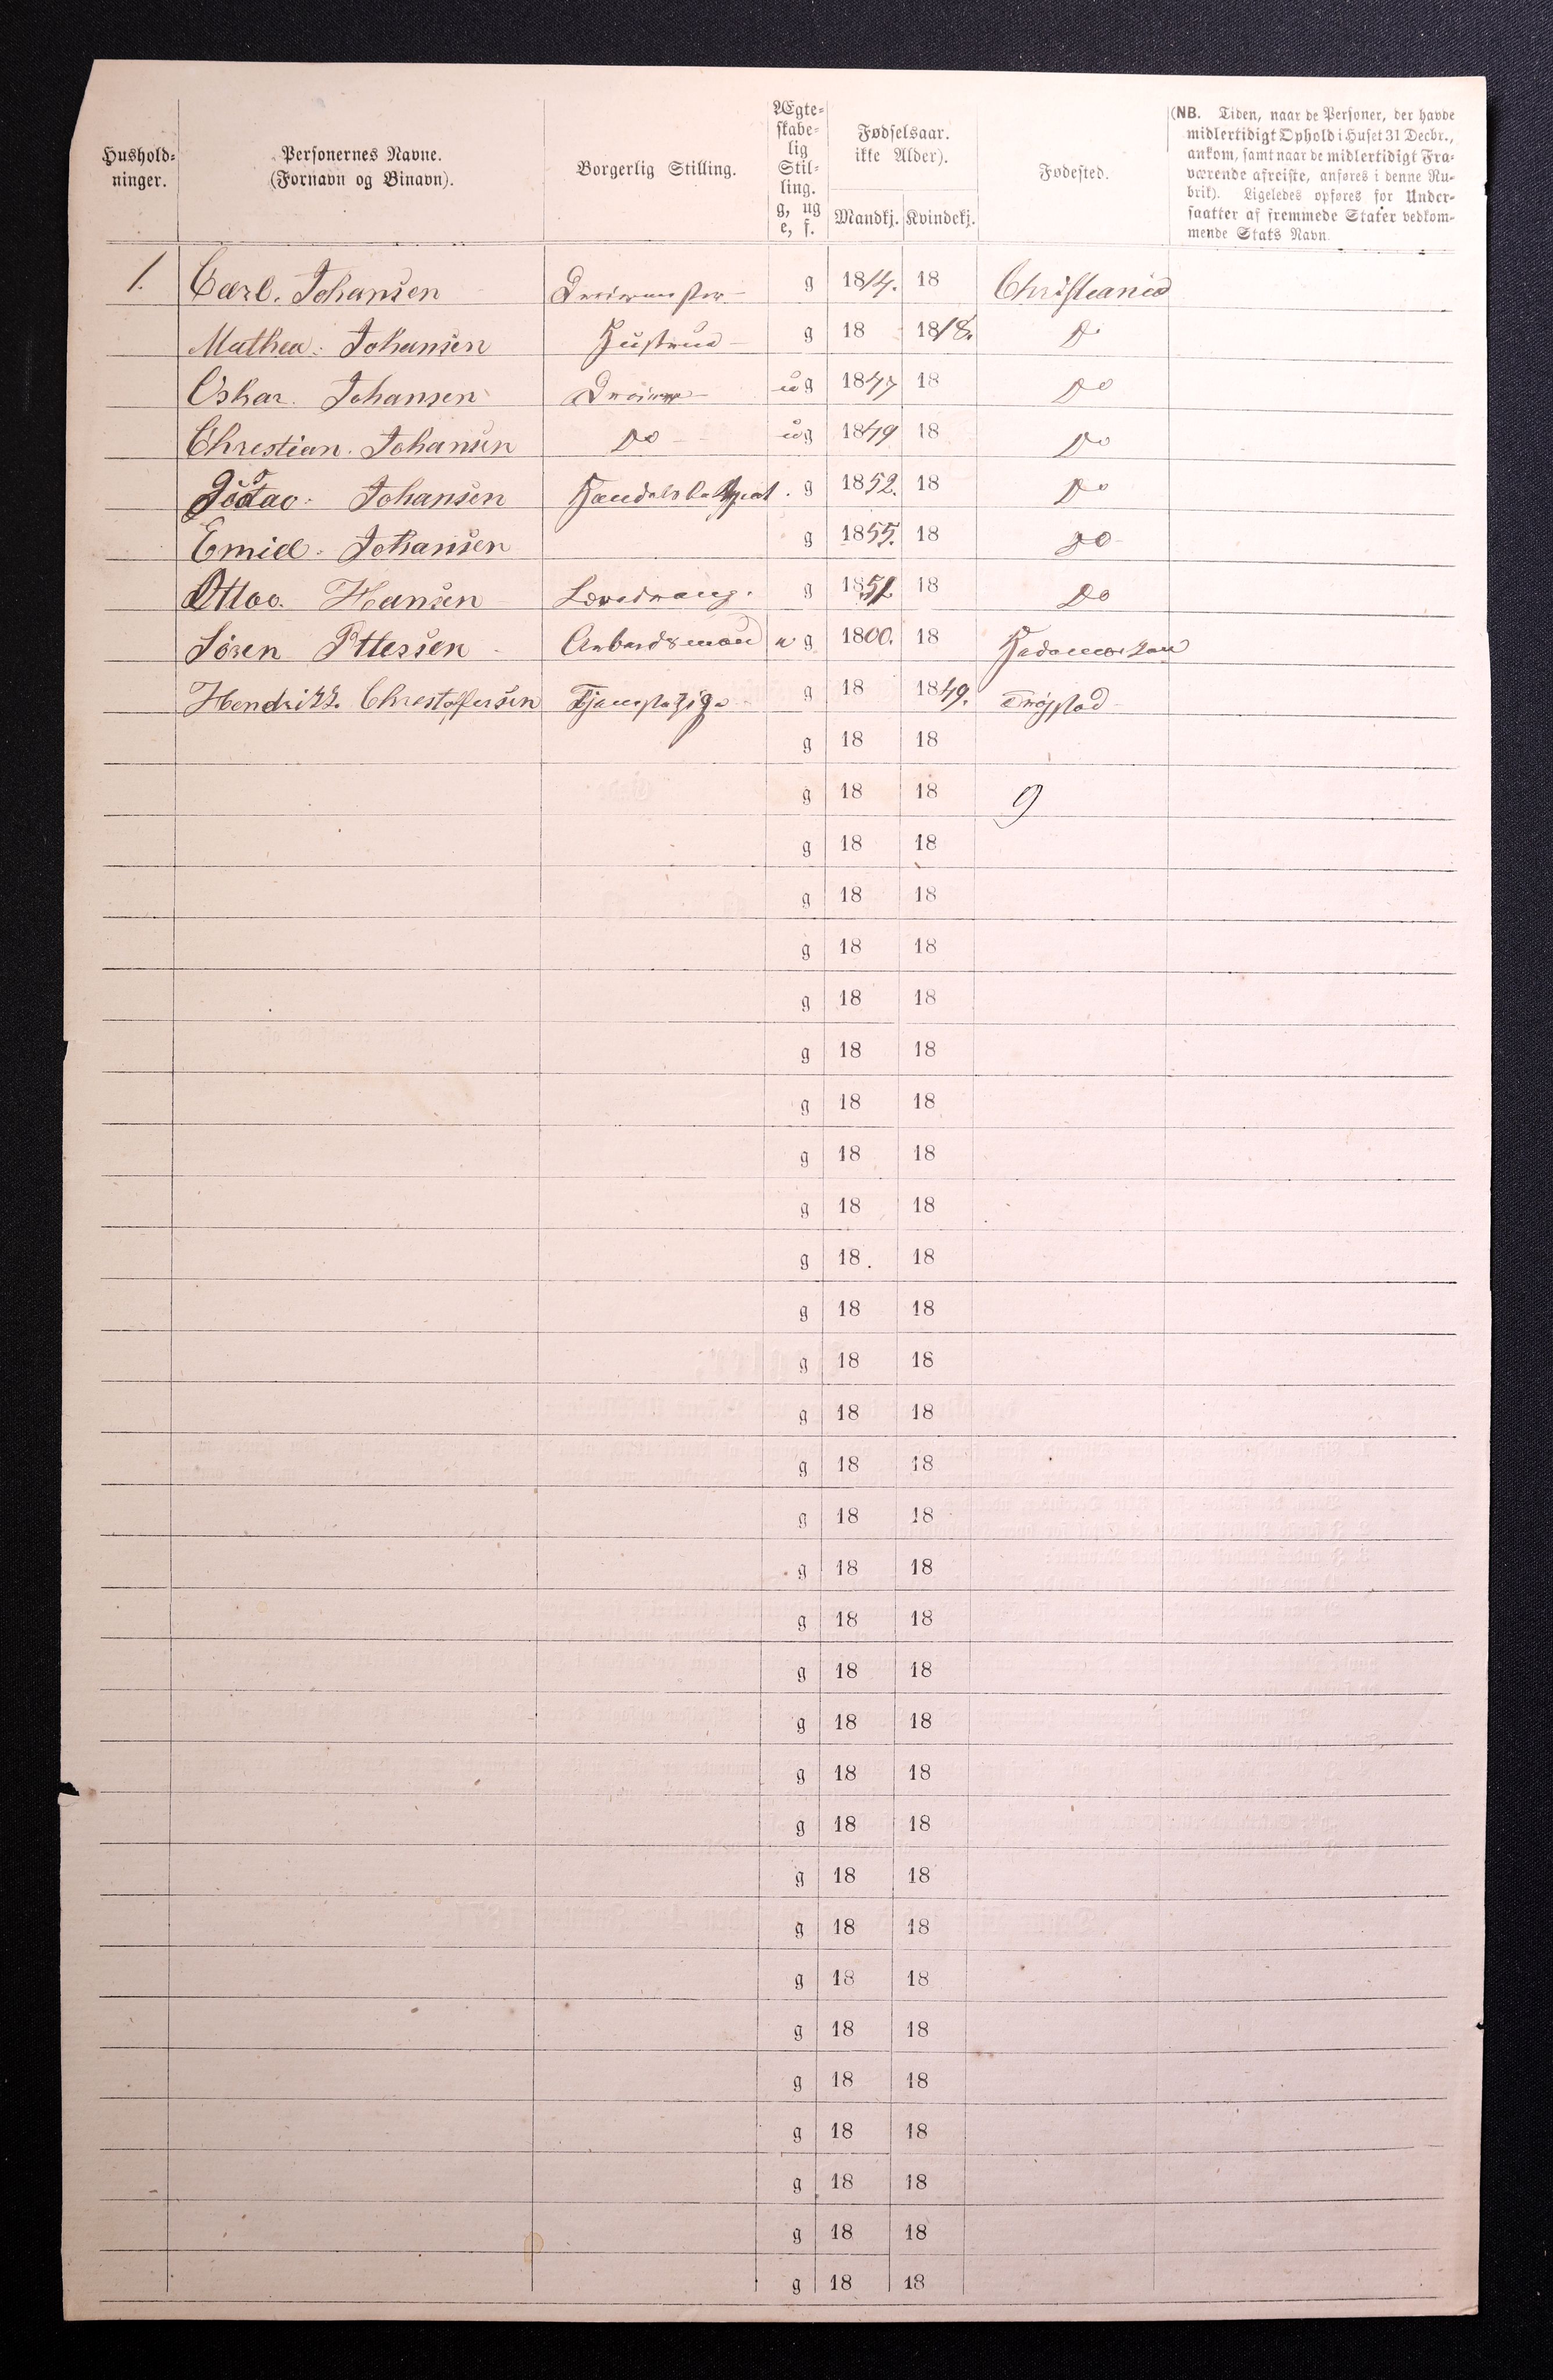 Hushold-
ninger.
Personernes Navne.
(Fornavn og Binavn).
Borgerlig Stilling.
Ægte-
skabe-
lig
Stil-
ling.
g, ug
e, f.
Fødselsaar.
ikke Alder).
Mandkj. Kvindekj.
Fødested.
(NB. Tiden, naar de Personer, der havde
midlertidigt Ophold i Huset 31 Decbr.,
ankom, samt naar de midlertidigt Fra-
værende afreiste, anføres i denne Ru-
brik). Ligeledes opføres for Under-
saatter af fremmede Stater vedkom-
mende Stats Navn.
1. Carl. Johansen g 1814. 18 Christiania
Mathea. Johansen Hustrue g 18 1818. Do
Oskar. Johansen ug 1847 18 Do
Chrestian. Johansen Do ug 1849 18 Do
Johansen g 1852. 18 Do
Emiel. Johansen g 1855. 18 Do
Ottoo. Hansen g 1851 18 Do
Sören Ottessen Arbeidsmand u g 1800. 18
Hendrikk. Chrestoffersen Tjenestepige g 18 1849. Trøgstad
g 18 18
g 18 18 9
g 18 18
g 18 18
g 18 18
g 18 18
g 18 18
g 18 18
g 18 18
g 18 18
g 18 18
g 18 18
g 18 18
g 18 18
g 18 18
g 18 18
g 18 18
g 18 18
g 18 18
g 18 18
g 18 18
g 18 18
g 18 18
g 18 18
g 18 18
g 18 18
g 18 18
g 18 18
g 18 18
g 18 18
g 18 18